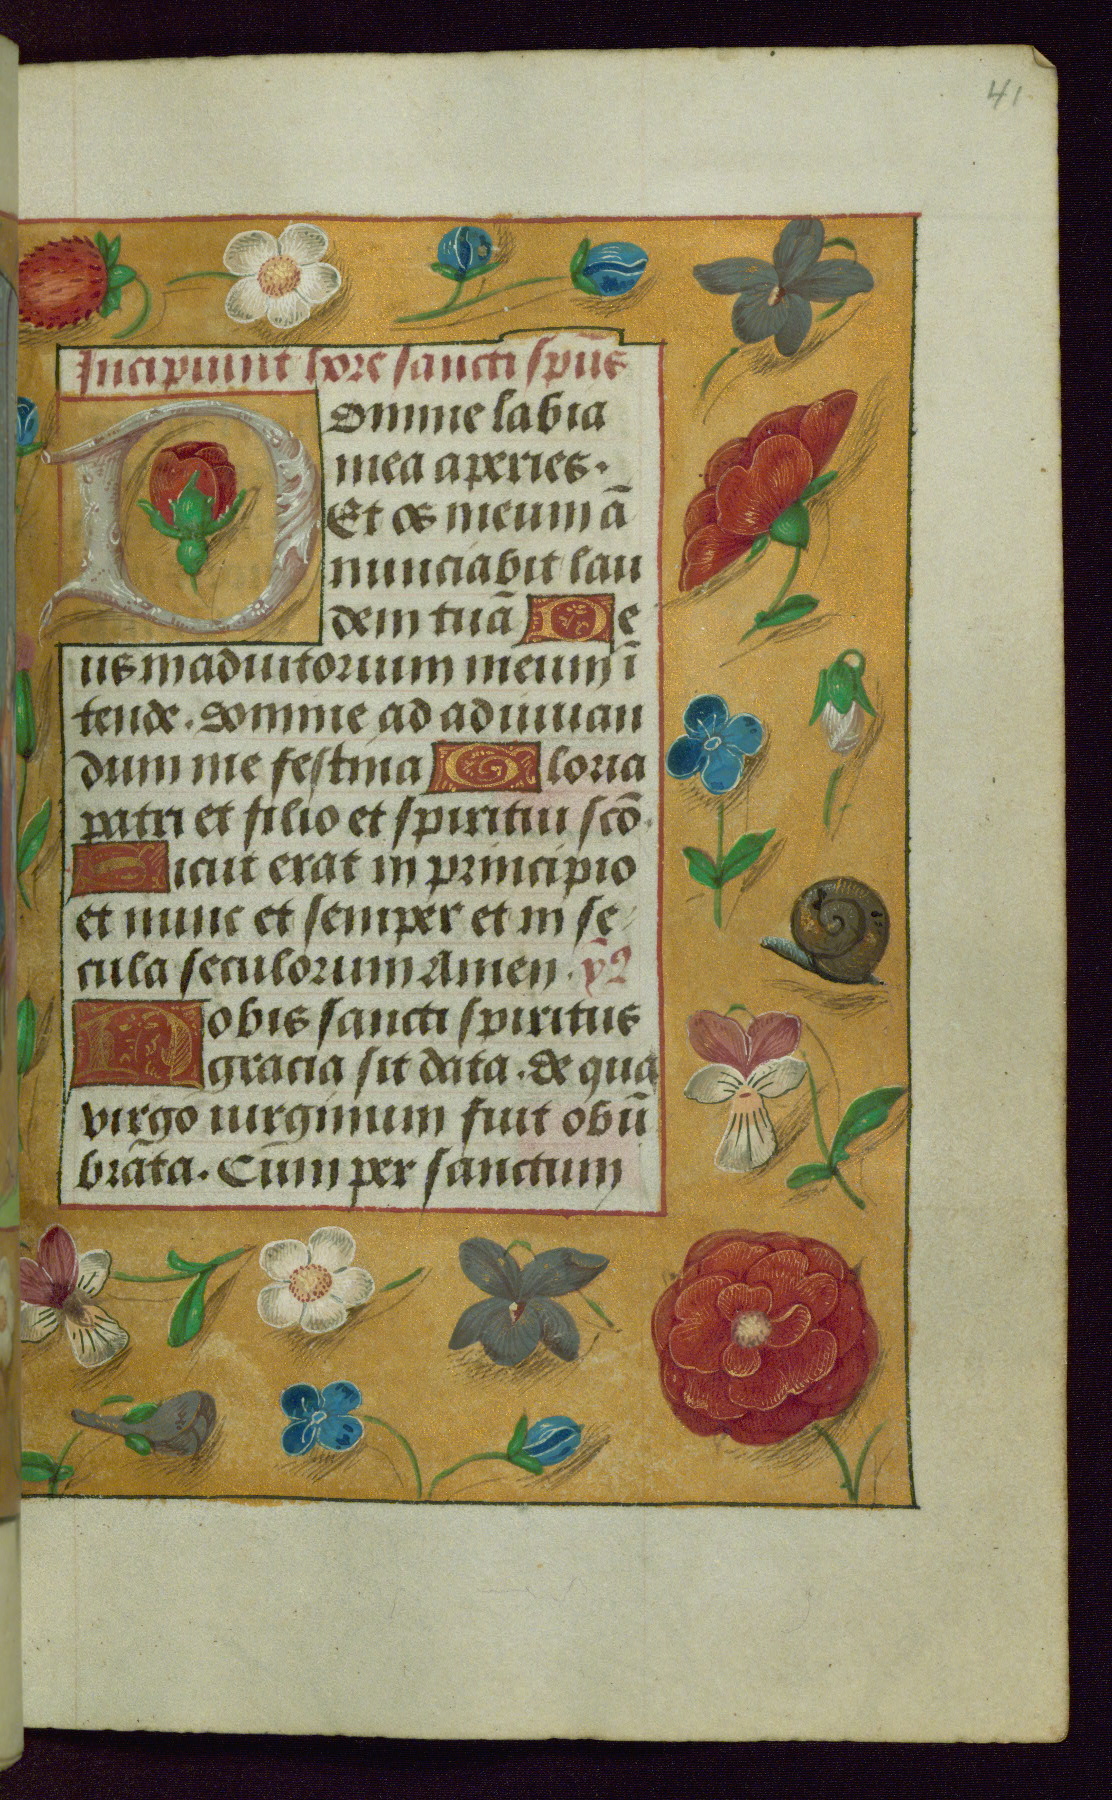 41
Incipiunt hore sancti sp̄us
Domine labia
mea aperies.
Et os meum ā
nunciabit lau
dem tuā De
us in adiutorium meum ī
tende. Domine ad adiuuan
dum me festina Gloria
patri et filio et spiritui scō.
Sicut erat in principio
et nunc et semper et in se
cula seculorum Amen.
Nobis sancti spiritus
gracia sit data. de qua
virgo uirginum fuit obū
brāta. Cum per sanctum